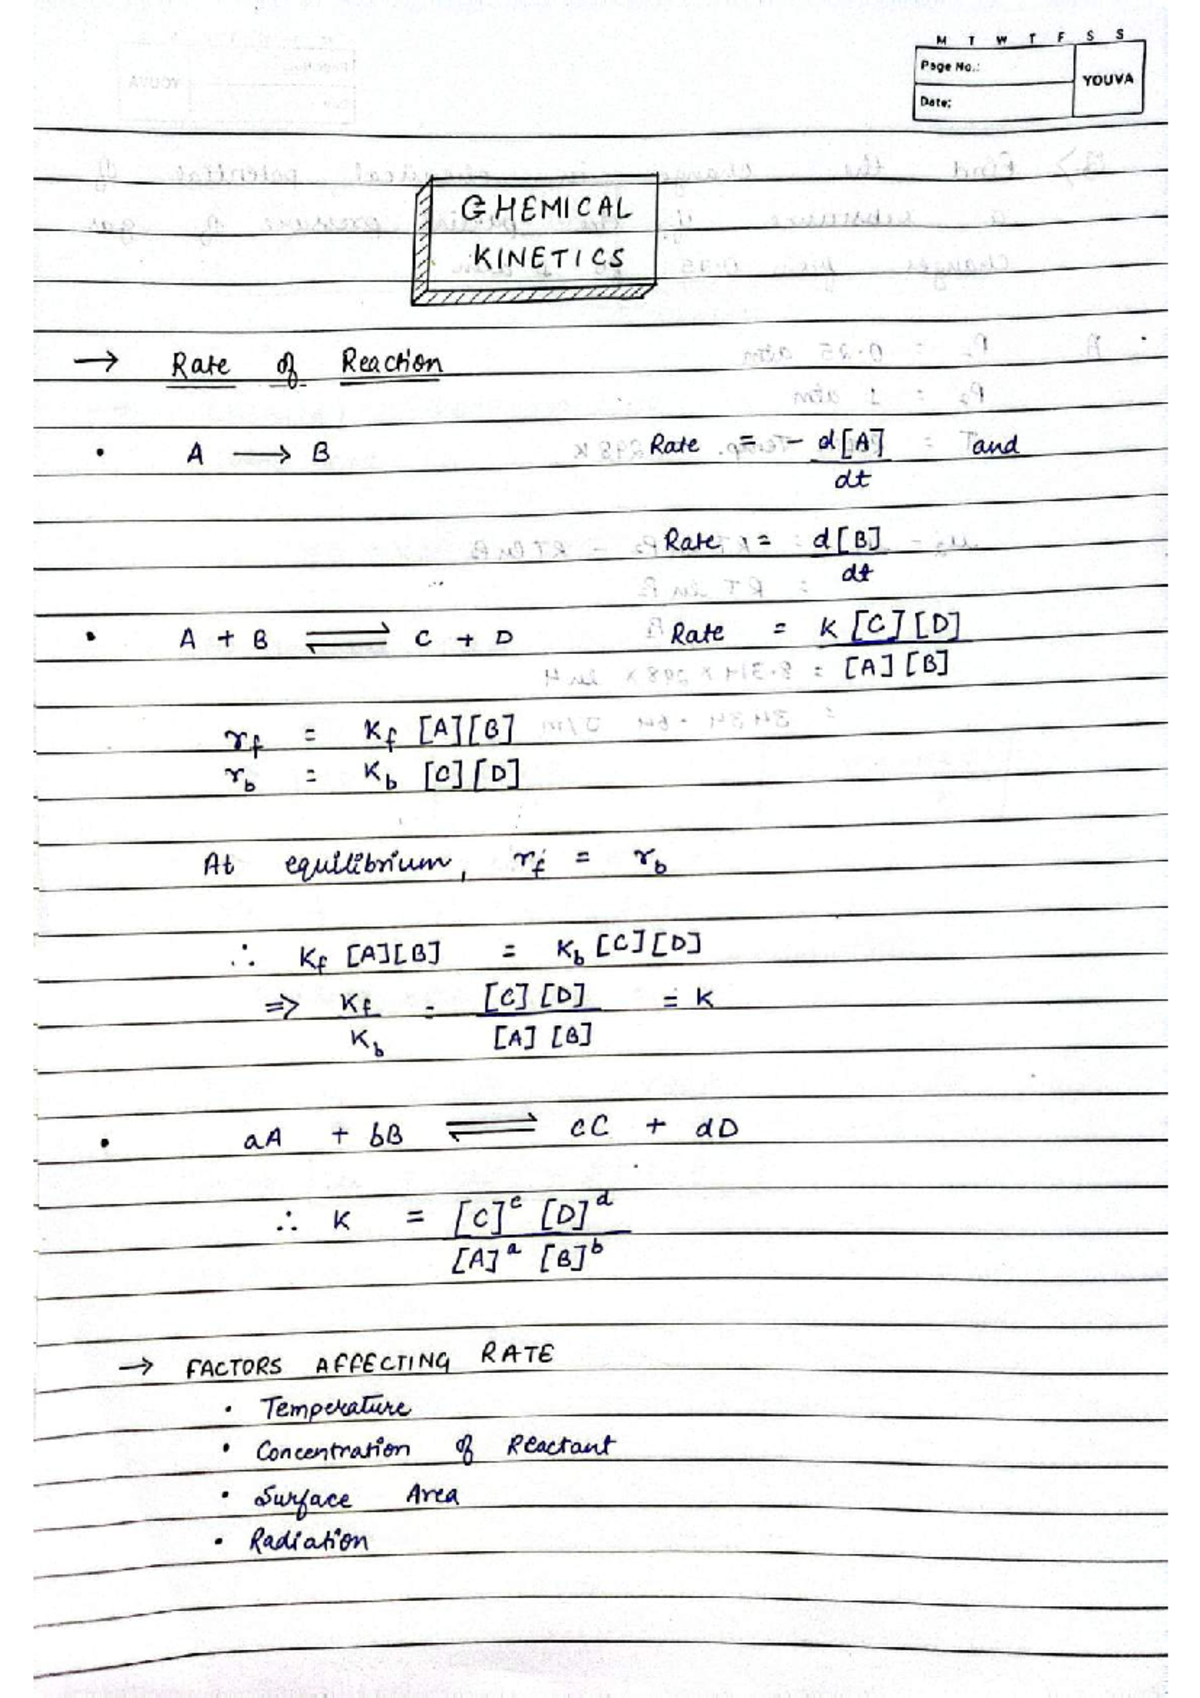 M T W T F S S
Page No.:
YOUVA
Date:
CHEMICAL
KINETICS
→ Rate of Reaction
• A → B Rate = - d[A] and
dt
Rate = d[B]
dt
• A + B ⇌ C + D Rate = K [C][D]
[A][B]
rf = Kf [A][B]
rb = Kb [C][D]
At equilibrium, rf = rb
∴ Kf [A][B] = Kb [C][D]
⇒ Kf = [C][D] = K
Kb [A][B]
• aA + bB ⇌ cC + dD
∴ K = [C]^c [D]^d
[A]^a [B]^b
→ FACTORS AFFECTING RATE
• Temperature
• Concentration of Reactant
• Surface Area
• Radiation